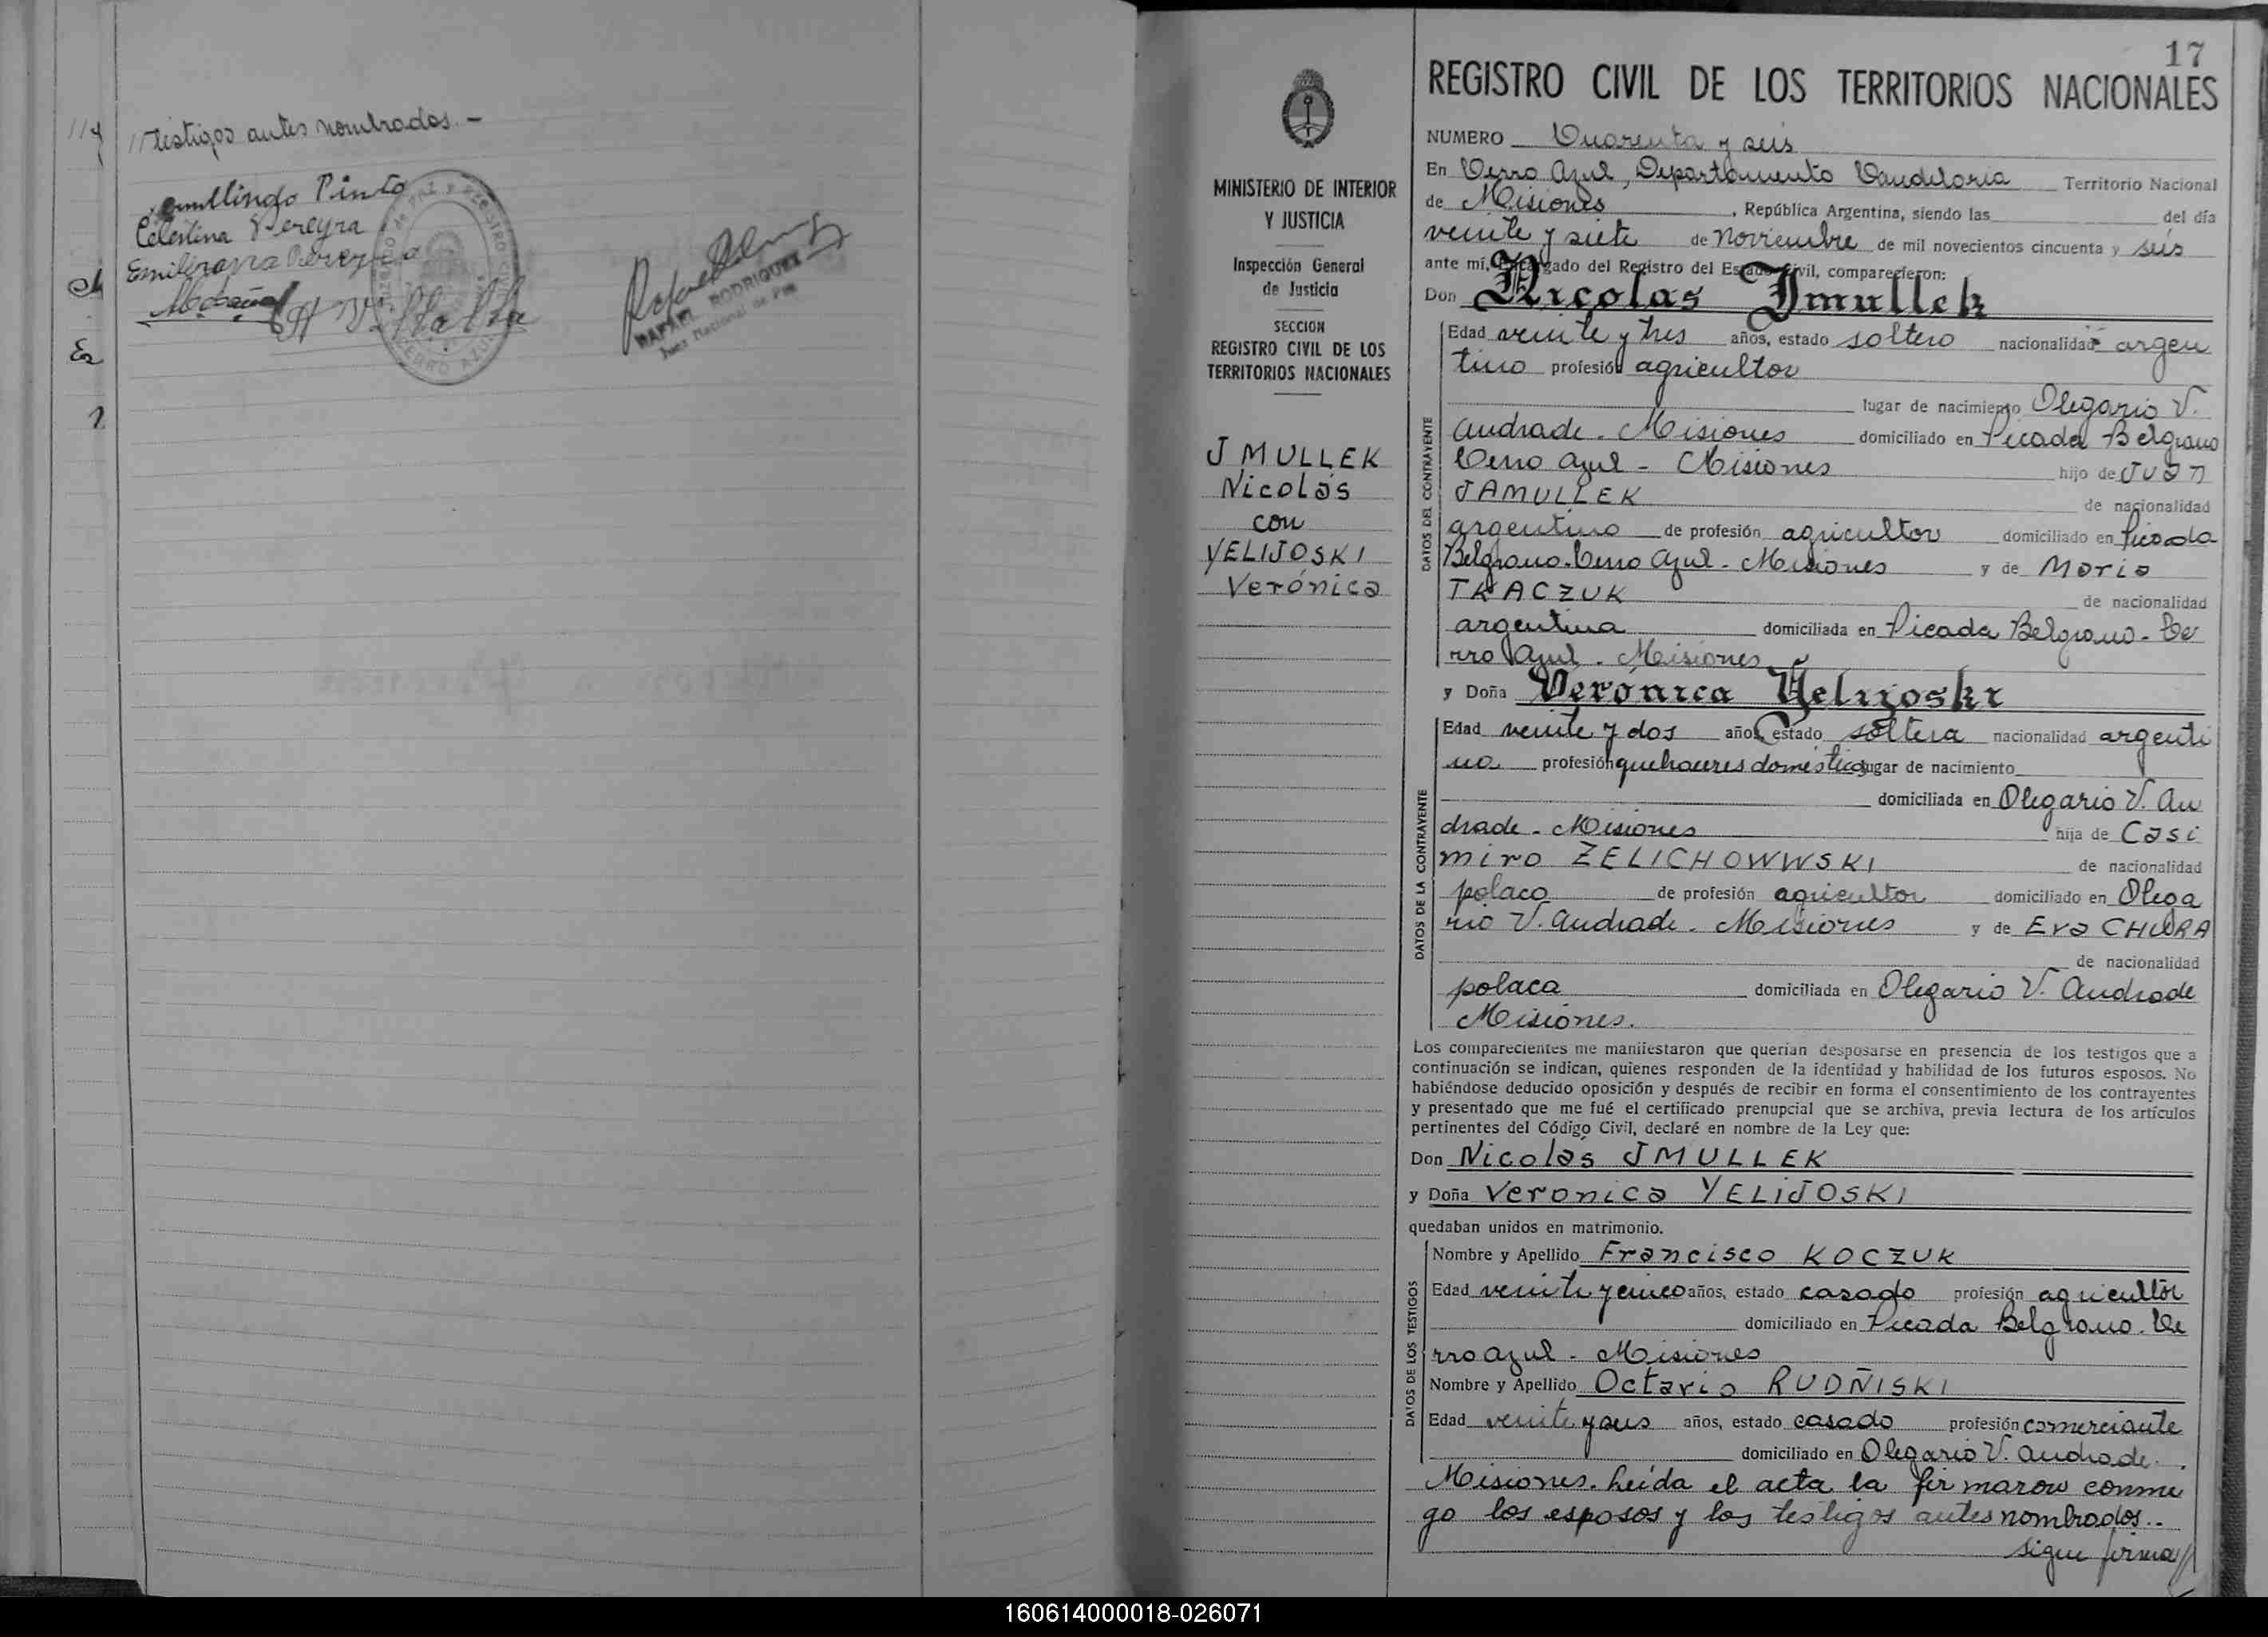 //testigos antes nombrados. -
Pinto
Celestina Pereyra
Emiliana Pereyra
RAFAEL RODRIGUEZ
Juez Nacional de Paz
17
MINISTERIO DE INTERIOR
Y JUSTICIA
Inspección General
de Justicia
SECCION
REGISTRO CIVIL DE LOS
TERRITORIOS NACIONALES
JMULLEK
Nicolás
con
YELIJOSKI
Verónica
REGISTRO CIVIL DE LOS TERRITORIOS NACIONALES
NUMERO Cuarenta y seis
En Cerro Azul, Departamento Candelaria Territorio Nacional
de Misiones, República Argentina, siendo las del día
veinte y siete de Noviembre de mil novecientos cincuenta y seis
ante mí, Encargado del Registro del Estado Civil, comparecieron:
Don Nicolas Jmullek
Edad veinte y tres años, estado soltero nacionalidad argen
tino profesión agricultor
lugar de nacimiento Olegario V.
Andrade. Misiones domiciliado en Picada Belgrano
Cerro Azul - Misiones hijo de Juan
JAMULLEK de nacionalidad
argentino de profesión agricultor domiciliado en Picada
Belgrano. Cerro Azul - Misiones y de Maria
TKACZUK de nacionalidad
argentina domiciliada en Picada Belgrano - Ce
rro Azul. Misiones
y Doña Verónica Yelijoski
Edad veinte y dos años, estado soltera nacionalidad argenti
na profesión quehaceres domésticos lugar de nacimiento
domiciliada en Olegario V. An
drade - Misiones hija de Casi
miro ZELICHOWWSKI de nacionalidad
polaco de profesión agricultor domiciliado en Olega
rio V. Andrade - Misiones y de Eva CHURA
de nacionalidad
polaca domiciliada en Olegario V. Andrade
Misiones.
DATOS DEL CONTRAYENTE
DATOS DE LA CONTRAYENTE
Los comparecientes me manifestaron que querían desposarse en presencia de los testigos que a
continuación se indican, quienes responden de la identidad y habilidad de los futuros esposos. No
habiéndose deducido oposición y después de recibir en forma el consentimiento de los contrayentes
y presentado que me fué el certificado prenupcial que se archiva, previa lectura de los artículos
pertinentes del Código Civil, declaré en nombre de la Ley que:
Don Nicolás JMULLEK
y Doña Veronica YELIJOSKI
quedaban unidos en matrimonio.
DATOS DE LOS TESTIGOS
Nombre y Apellido Francisco KOCZUK
Edad veinte y cinco años, estado casado profesión agricultor
domiciliado en Picada Belgrano. Ce
rro Azul - Misiones
Nombre y Apellido Octavio RUDÑISKI
Edad veinte y seis años, estado casado profesión comerciante
domiciliado en Olegario V. Andrade.
Misiones. Leída el acta la firmaron conmi
go los esposos y los testigos antes nombrados.-
sigue firma//
160614000018-026071